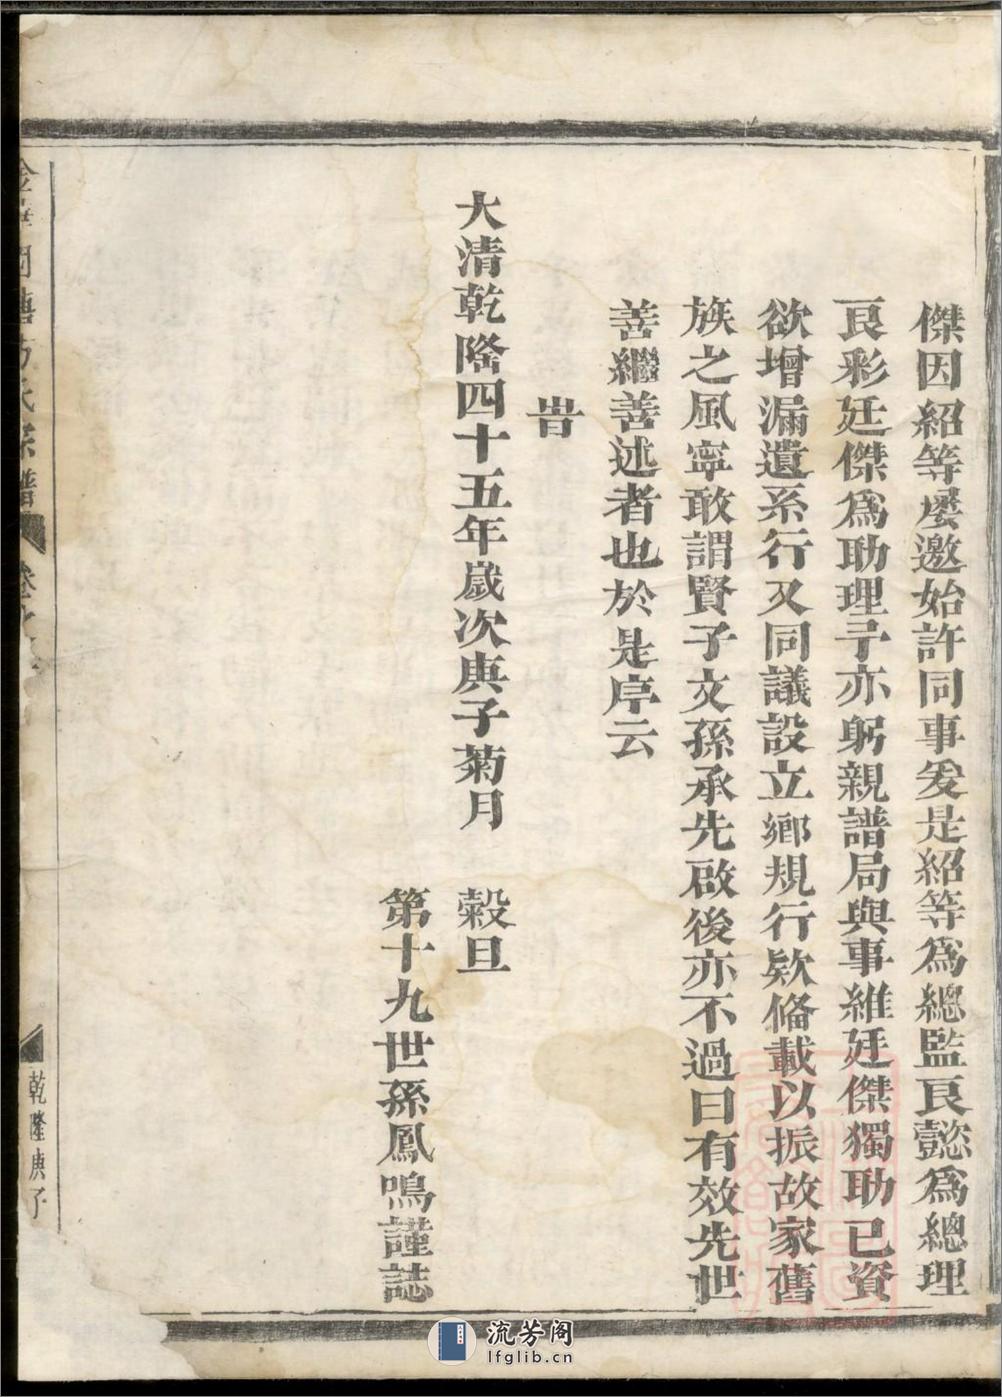 傑因紹等屡邀始許同事爰是紹等爲總監良懿爲總理
良彩廷傑爲助理予亦躬親譜局與事維廷傑獨助已資
欲增漏遺系行又同議設立鄉規行欵俻載以振故家舊
族之風寜敢謂賢子文孫承先啟後亦不過曰有效先世
善繼善述者也於是序云
旹
大清乾隆四十五年歲次庚子菊月 榖旦
第十九世孫鳳鳴謹誌
氏宗譜 卷之
乾隆庚子
流芳阁
lfglib.cn